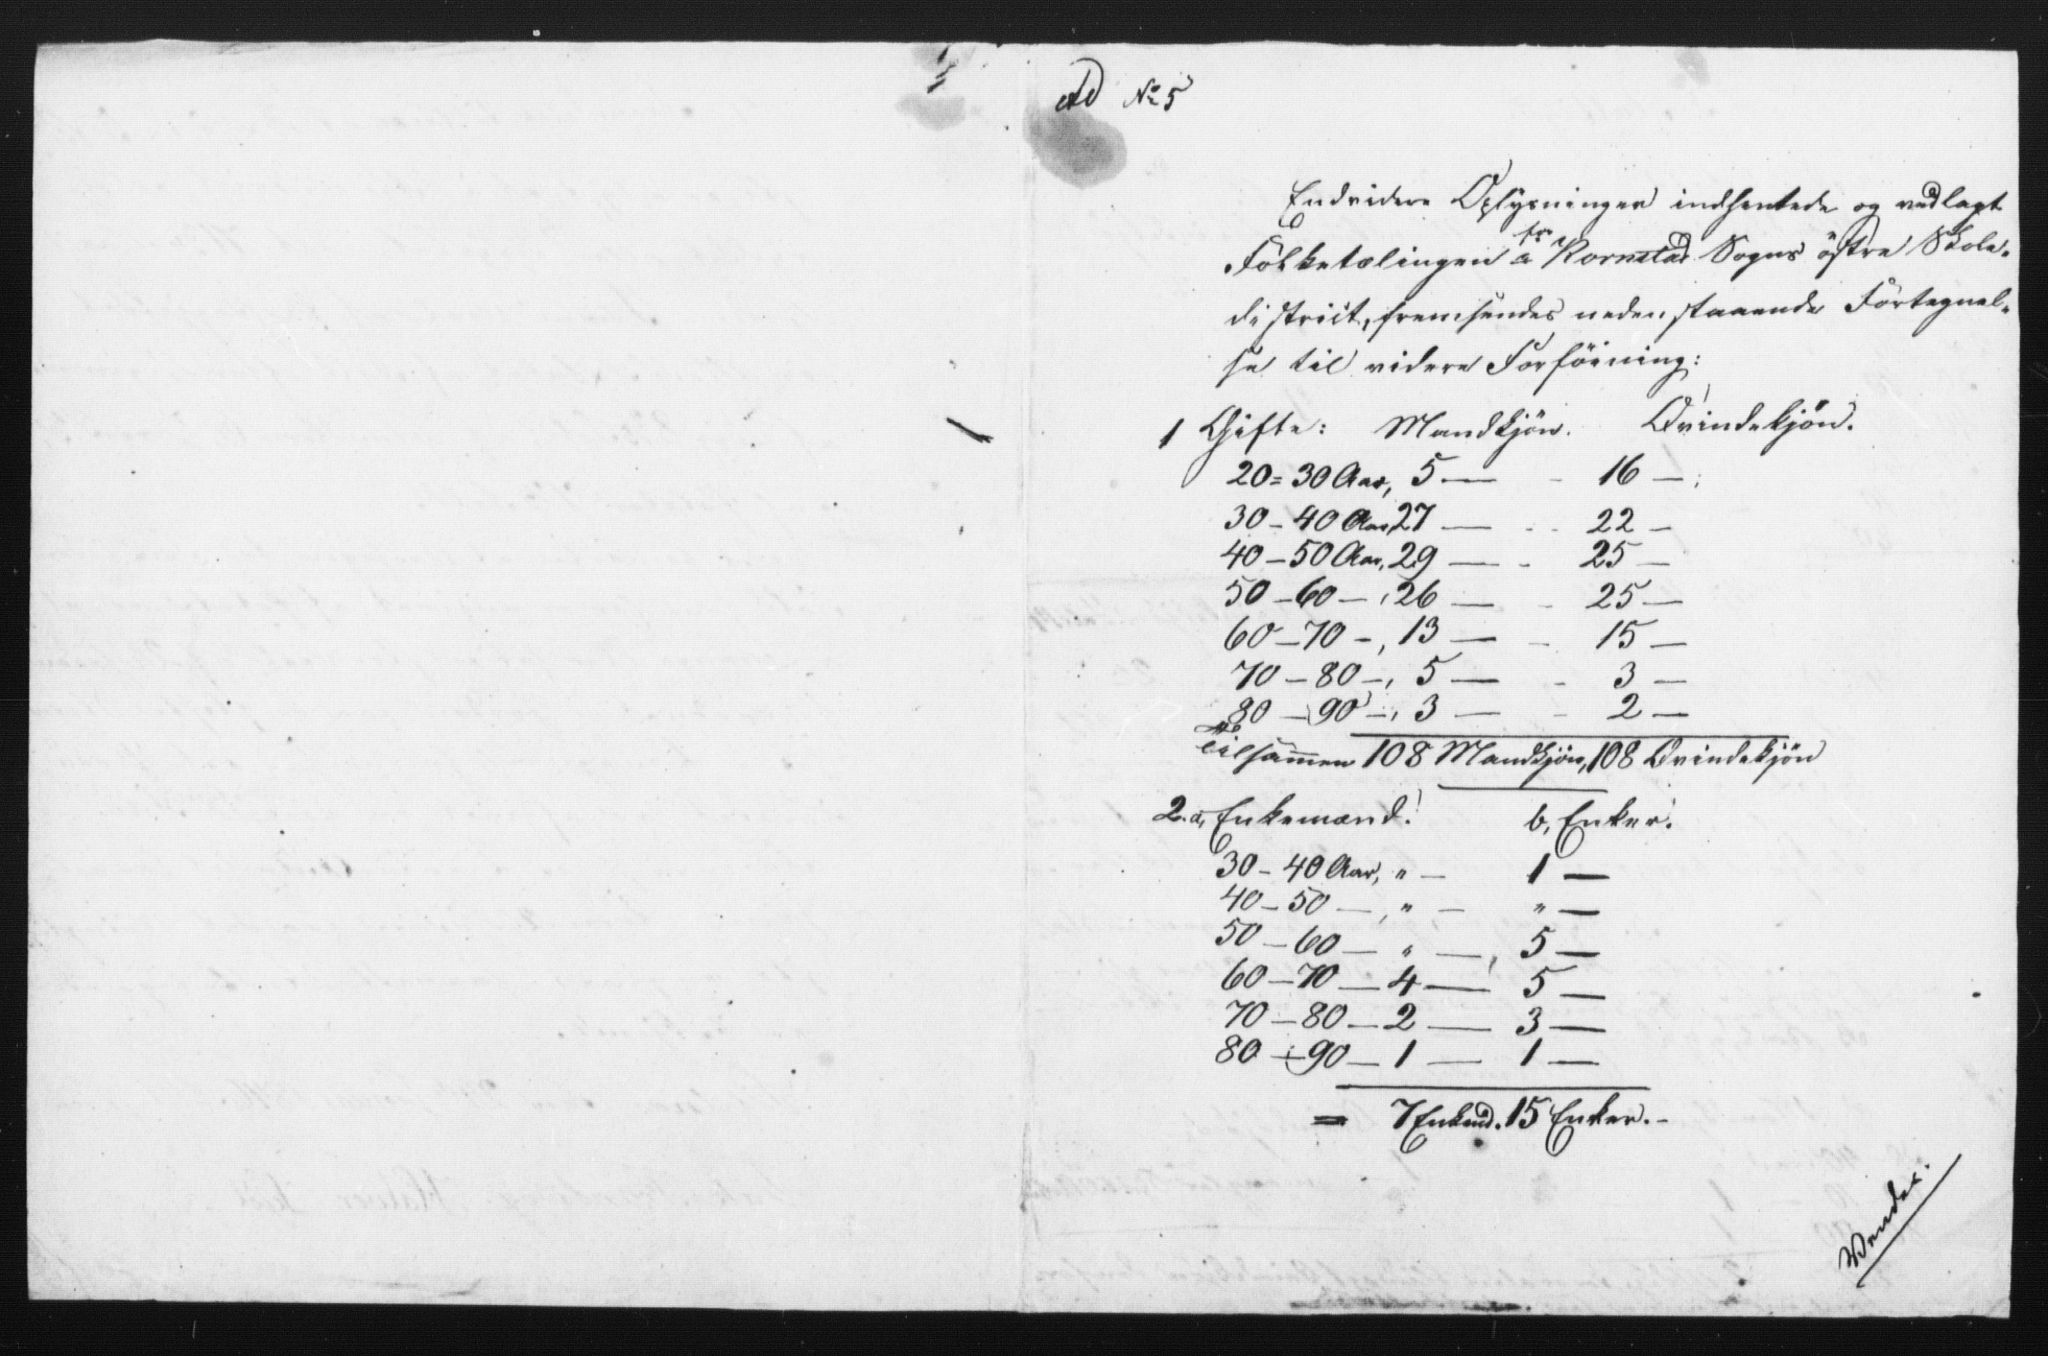 Ad No 5
Endvidere Oplysninger indhentede og vedlagt
Folketælingen fra Kornstad Sogns östre Skole-
district, fremsendes nedenstaaende Fortegnel-
se til videre Forföining:
1 Gifte: Mandkjön. Qvindekjön.
20=30 Aar, 5 — - 16 —
30-40 Aar, 27 — - 22 —
40-50 Aar, 29 — - 25 —
50-60 —, 26 — - 25 —
60-70 —, 13 — - 15 —
70-80 —, 5 — - 3 —
80-90 —, 3 — - 2 —
Tilsammen 108 Mandkjön, 108 Qvindekjön
2. a, Enkemænd. b, Enker.
30-40 Aar, " — 1 —
40-50 —, " — " —
50-60 — " —, 5 —
60-70 — 4 — 5 —
70-80 — 2 — 3 —
80-90 — 1 — 1 —
= 7 Enkmd. 15 Enker. -
Vendes.